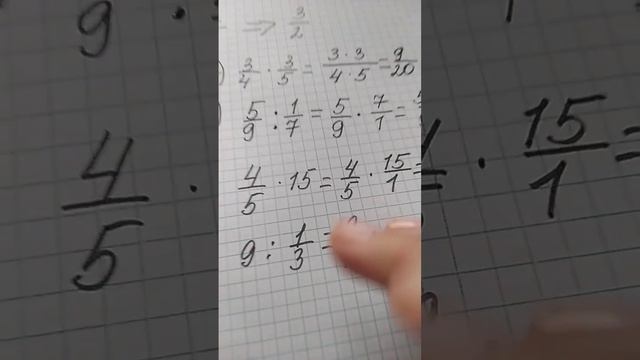 ⇒ 3/2
3/4 · 3/5 = 3·3/4·5 = 9/20
5/9 : 1/7 = 5/9 · 7/1 =
4/5 · 15 = 4/5 · 15/1 =
9 : 1/3 =